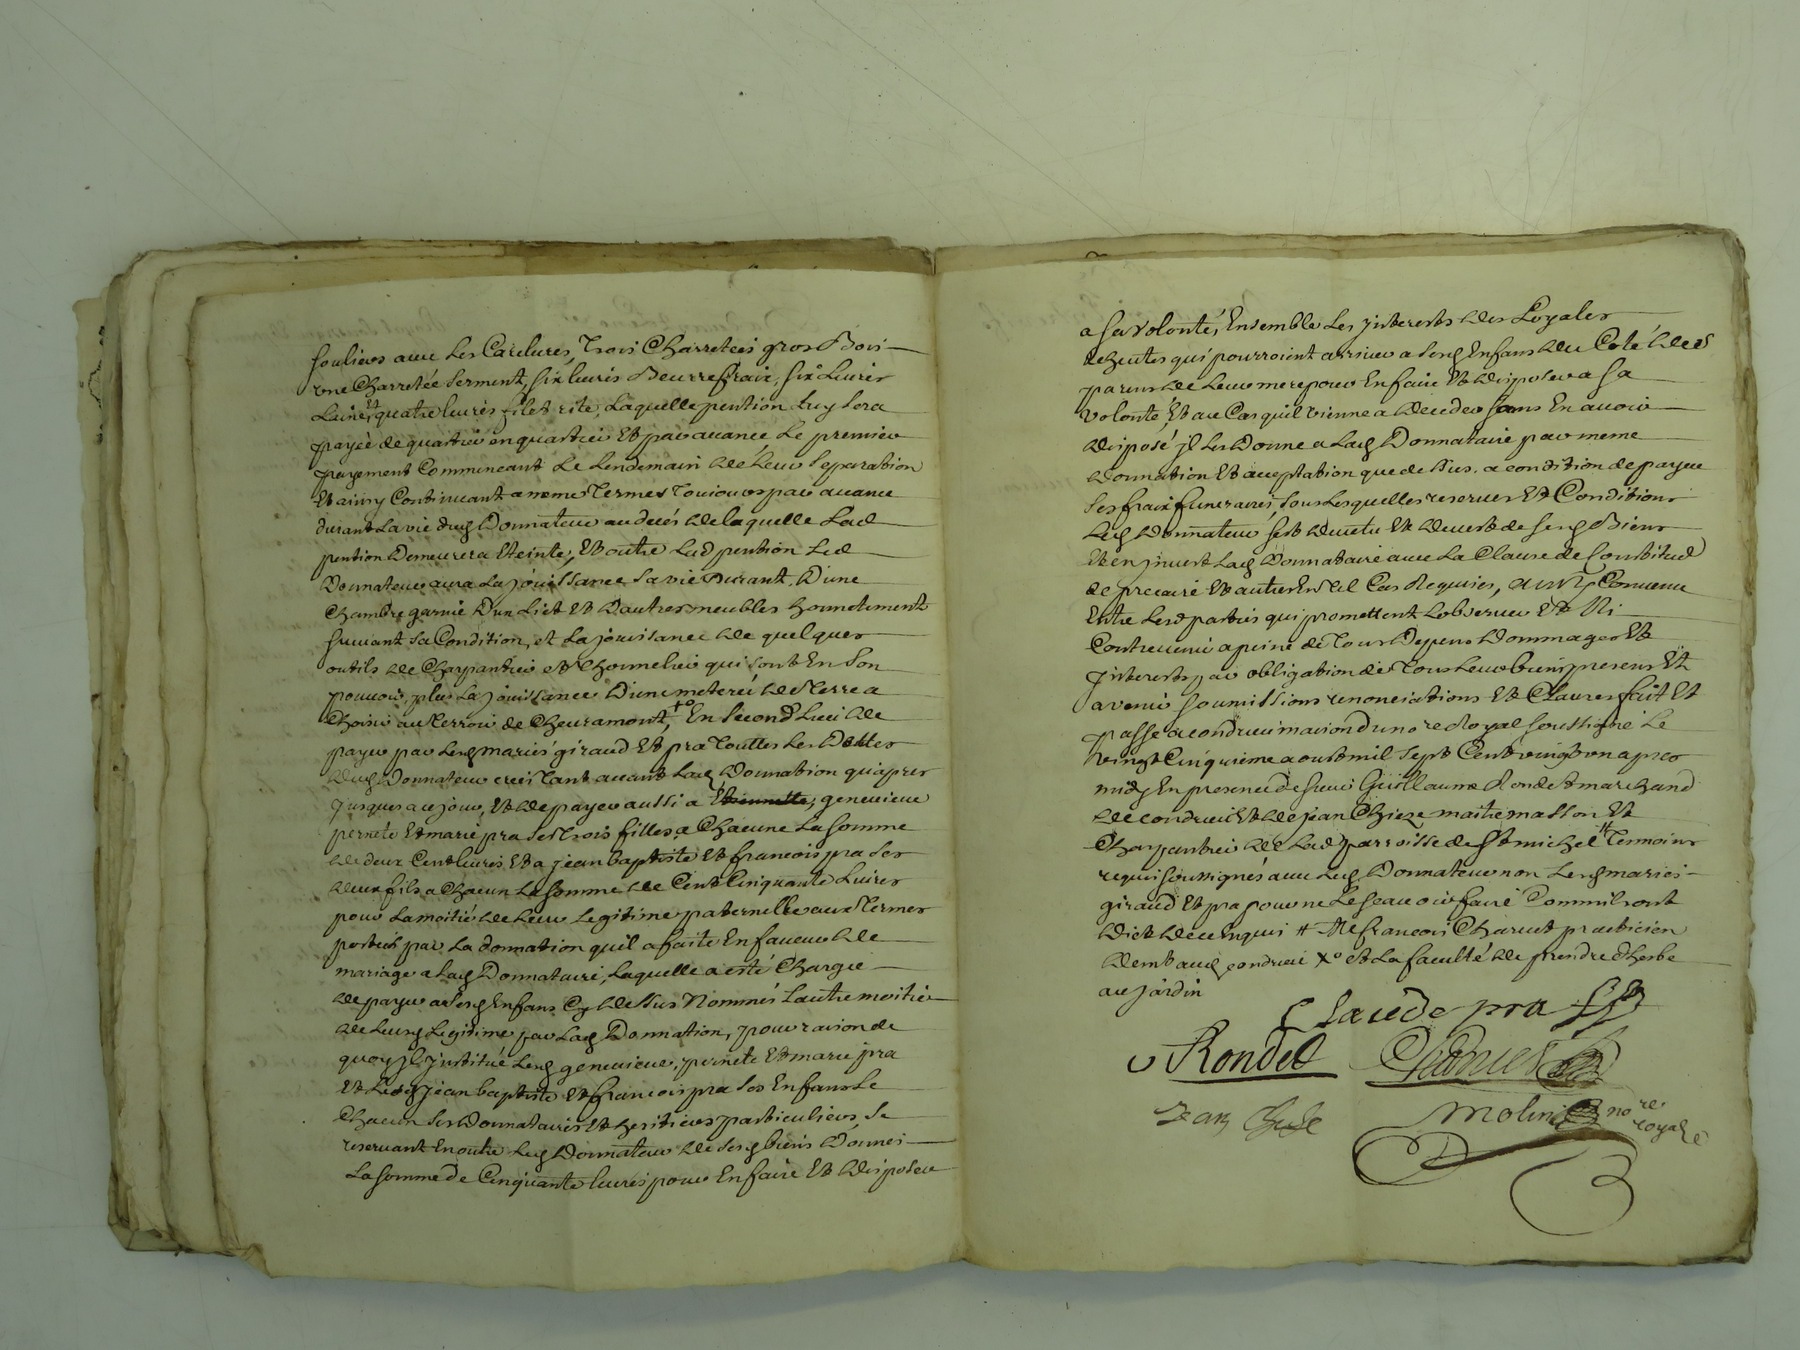 souliers avec les Carelures, Trois Charretées gros Bois
une Charretée serment, six livres Beurre frais, six livres
Laine, et quatre livres filet rite, Laquelle pention luy sera
payée de quartier en quartier Et par avance Le premier
payement Commencant Le Lendemain de Leur separation
Et ainsy Continuant a meme Termes Toujours par avance
durant La vie dud Donnateur au decés de laquelle Lad
pention Demeurera Eteinte, Et outre Lad pention Led
Donnateur aura La jouissance sa vie Durant D'une
Chambre garnie D'un Lict Et D'autres meubles honnetement
suivant sa Condition, et La jouissance de quelques
outils de Charpantier et Thonnelier qui sont En son
pouvoir, plus La jouissance D'une meterée de Terre a
Choisir au Terroir de Cheuramont, x° En second Lieu de
payer par Lesd mariés giraud Et pra Touttes Les Dettes
dud Donnateur creés Tant avant Lad Donnation qu'apres
jusques a ce jour, Et de payer aussi a Etiennette, genevieve
pernete Et marie pra ses Trois filles a Chacune La somme
de deux Cent livres Et a jean baptiste Et francois pra ses
deux fils a Chacun La somme de Cent Cinquante Livres
pour La moitié de Leur Legitime paternelle aux Termes
portés par La donnation quil a faite En faveur de
mariage a Lad Donnataire, Laquelle a esté Chargée
de payer a sesd Enfans Cy dessus Nommés L'autre moitié
de Leurd Legitime par Lad Donnation, pour raison de
quoy jl institue Lesd genevieve, pernete Et marie pra
Et Lesd jean baptiste Et francois pra ses Enfans Le
Chacun ses Donnataires Et heritiers particuliers, se
reservant En outre Led Donnateur de sesd biens Donnés
La somme de Cinquante livres pour En faire Et disposer
a sa volonté, Ensemble Les jnterests des Loyales
echeutes qui pourroient arriver a sesd Enfans du Coté des
parens de Leur mere pour En faire Et disposer a sa
volonté, Et au Cas quil vienne a deceder sans En avoir
disposé jl Les Donne a Lad Donnataire par meme
Donnation Et acceptation que dessus. a condition de payer
ses fraix funeraires, sous Lesquelles reserves Et Conditions
Led Donnateur s'est devetu Et devest de sesd Biens
Et en jnvest Lad Donnataire avec La Clause de Constitut
de precaire Et autres En tel Cas Requises, Convenu
Entre Lesd parties qui promettent L'observer Et Ni
Contrevenir a peine de Tous Depens Dommages Et
jnterests, par obligation de Tous Leurs biens presens Et
avenir soumissions renonciations Et Clauses fait Et
passé a condrieu maison du no re Royal soussigné Le
vingt Cinquieme aoust mil sept Cent vingt un apres
midy En presence de sieur Guillaume Rondet marchand
de condrieu Et de jean Chieze maitre masson Et
Charpantier de Lad parroisse de St michel # Temoins
requis soussignés avec Led Donnateur non Lesd mariés
giraud Et pra pour ne Le scavoir faire Comm'ils ont
dict de ce Enquis # Me francois Charvet practicien
demt aud condrieu x° et La faculté de prendre d'herbe
au jardin
Claude pra
Rondet Charvet
Jean Chieze Molin no re
royal